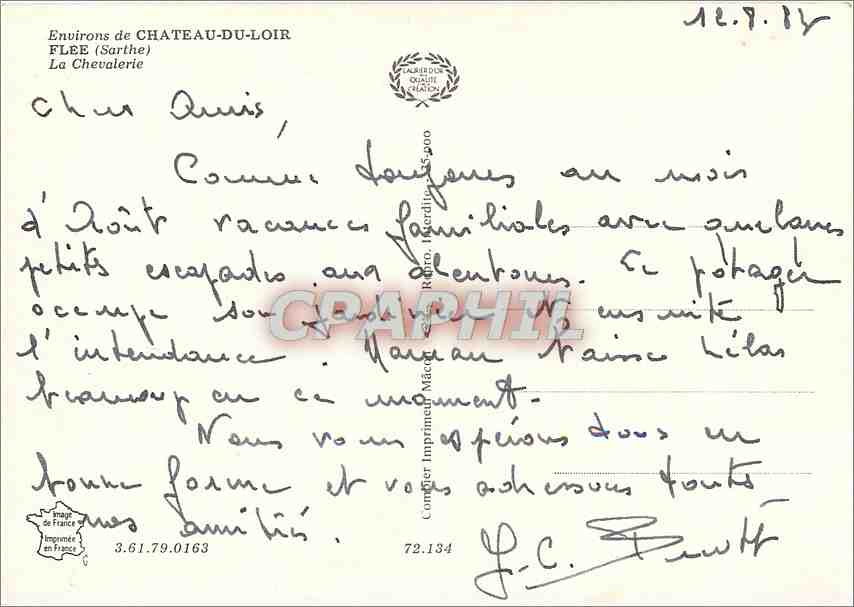 12.8.87
Environs de CHATEAU-DU-LOIR
FLEE (Sarthe)
La Chevalerie
LAURIER D'OR
DE LA
QUALITÉ
CRÉATION
Chers Amis,
Comme toujours au mois
d'Août vacances familiales avec quelques
petits escapades aux alentours. Le potager
occupe son jardinier et ensuite
l'intendance. Maman baisse hélas
beaucoup en ce moment.
Nous vous espérons tous en
bonne forme et vous adressons toutes
nos amitiés.
J-C.
Combier Imprimeur Mâcon
Repro. Interdite
35.000
CPAPHIL
Image
de France
Imprimée
en France
3.61.79.0163
72.134